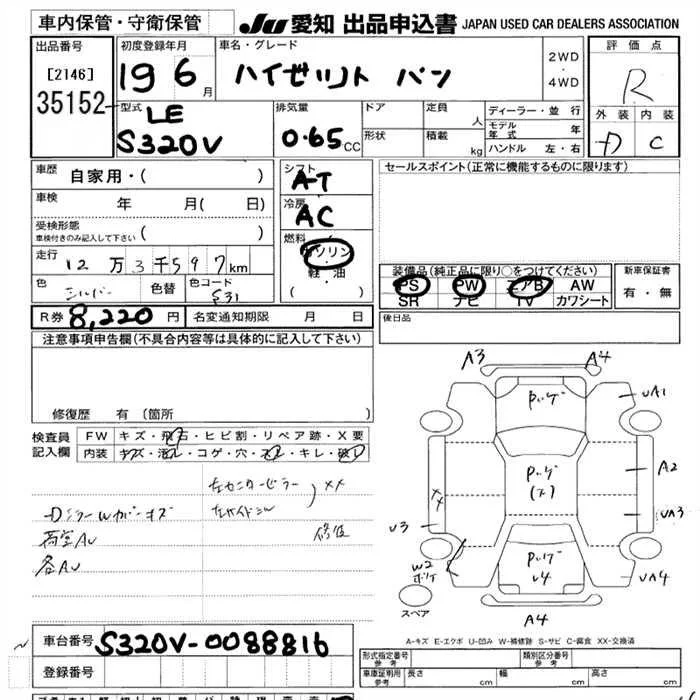 車内保管・守衛保管
JU 愛知 出品申込書 JAPAN USED CAR DEALERS ASSOCIATION
出品番号
[2146]
35152
初度登録年月
19 6 月
車名・グレード
ハイゼット バン
2WD
・
4WD
評価点
R
外装 内装
D C
型式
LE
S320V
排気量
0.65 CC
ドア
形状
定員 人
積載 kg
ディーラー・並行
モデル年式 年
ハンドル 左・右
車歴
自家用・( )
車検 年 月( 日)
受検形態
車検付きのみ記入して下さい ( )
走行
12万3千597km
色 シルバー 色替 色コード S31
R券 8,220 円 名変通知期限 月 日
シフト
A-T
冷房
AC
燃料
ガソリン
軽・油
( )
セールスポイント(正常に機能するものに限ります)
装備品(純正品に限り○をつけてください)
PS PW エアB AW
SR ナビ TV カワシート
新車保証書
有・無
後日品
注意事項申告欄(不具合内容等は具体的に記入して下さい)
修復歴 有(箇所
検査員
記入欄
FW キズ・飛石・ヒビ割・リペア跡・X要
内装 キズ・汚レ・コゲ・穴・スレ・キレ・破レ
左センターピラー
左サイドシル
XX
修復
各AU
A3 A4
UA1
A2
UA3
UA4
U3
XX
W2
ボケ
A4
スペア
A-キズ E-エクボ U-凹み W-補修跡 S-サビ C-腐食 XX-交換済
車台番号 S320V-0088816
登録番号
形式指定番号
参考
類別区分番号
参考
車庫証明用
参考
長さ cm
幅 cm
高さ cm